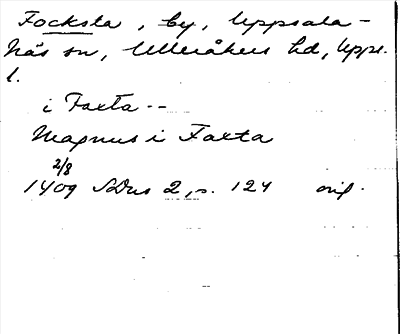 Focksta, by, Uppsala-
Näs sn, Ulleråkers hd, Upps.
l.
i Faxta --
Magnus i Faxta
2/8
1409 SDns 2, s. 124 orig.